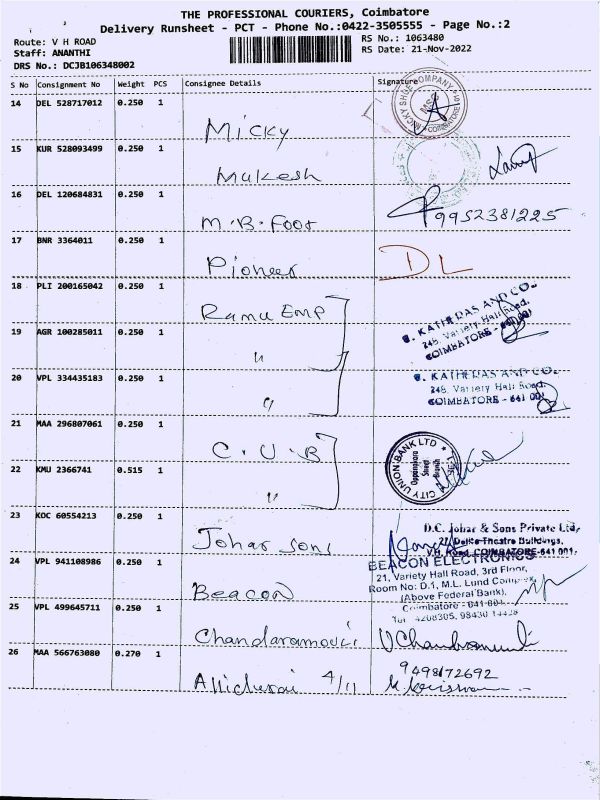 THE PROFESSIONAL COURIERS, Coimbatore
Delivery Runsheet - PCT - Phone No.:0422-3505555 - Page No.:2
Route: V H ROAD
Staff: ANANTHI
DRS No.: DCJB106348002
RS No.: 1063480
RS Date: 21-Nov-2022
S No Consignment No Weight PCS Consignee Details Signature
14 DEL 528717012 0.250 1
Micky
MICKY SHOE COMPANY
COIMBATORE
MSC
15 KUR 528093499 0.250 1
Mukesh
16 DEL 120684831 0.250 1
M.B.Foot 9952381225
17 BNR 3364011 0.250 1
Pioneer DL
18 PLI 200165042 0.250 1
Ramu Emp
KATHRDAS AND CO.
248, Variety Hall Road,
COIMBATORE - 641 001
19 AGR 100285011 0.250 1
"
20 VPL 334435183 0.250 1
"
KATHRDAS AND CO.
248, Variety Hall Road,
COIMBATORE - 641 001
21 MAA 296807061 0.250 1
C.U.B
CITY UNION BANK LTD
Oppanakara
Street
Branch
22 KMU 2366741 0.515 1
"
23 KDC 60554213 0.250 1
Johar Sons
D.C. Johar & Sons Private Ltd,
Delite Theatre Buildings,
V.H. Road, COIMBATORE-641 001.
24 VPL 941108986 0.250 1
Beacon
BEACON ELECTRONICS
21, Variety Hall Road, 3rd Floor,
Room No: D.1, M.L. Lund Complex,
(Above Federal Bank),
Coimbatore - 641 001.
25 VPL 499645711 0.250 1
Chandaramouli
26 MAA 566763080 0.270 1
Allidurai 4/11
9498172692